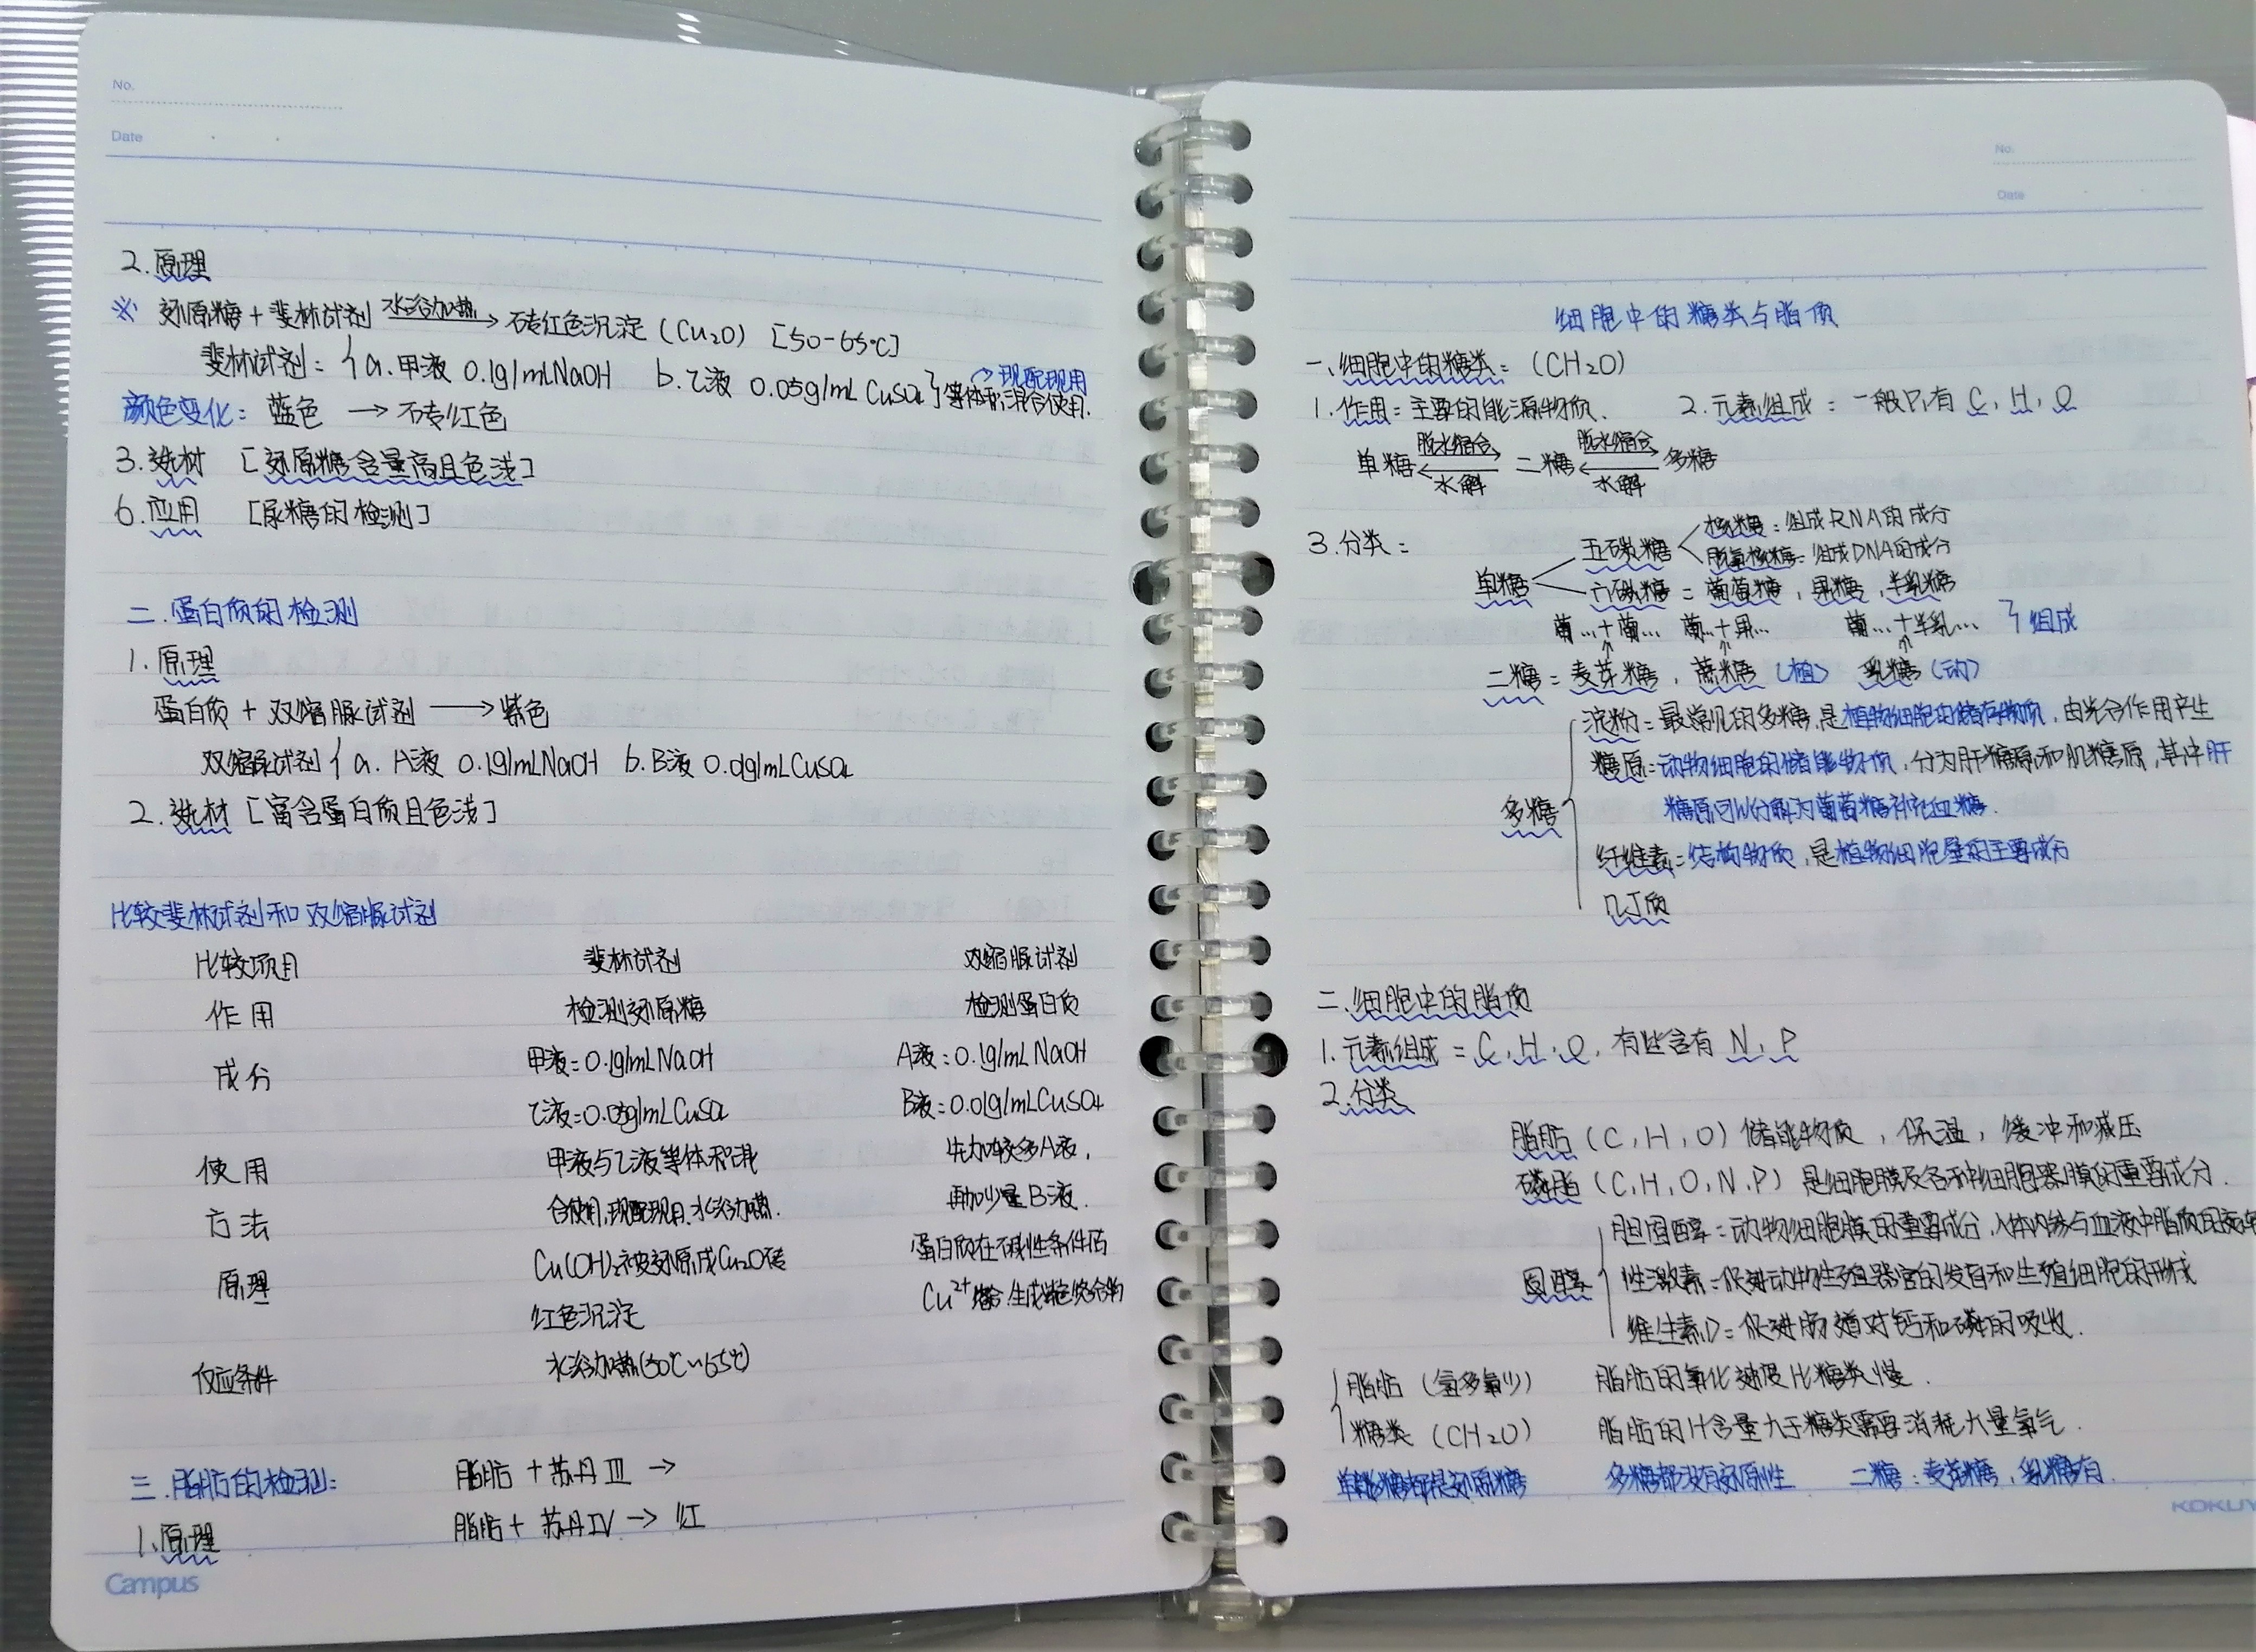 No.
Date
2.原理
※ 还原糖+斐林试剂 水浴加热→ 砖红色沉淀(Cu₂O) [50-65℃]
斐林试剂:{a.甲液 0.1g/mLNaOH b.乙液 0.05g/mL CuSO₄}等体积混合使用.
→现配现用
颜色变化: 蓝色 → 砖红色
3.选材 [还原糖含量高且色浅]
6.应用 [尿糖的检测]
二.蛋白质的检测
1.原理
蛋白质 + 双缩脲试剂 → 紫色
双缩脲试剂{a. A液 0.1g/mLNaOH b.B液 0.01g/mLCuSO₄
2.选材[富含蛋白质且色浅]
比较斐林试剂和双缩脲试剂
比较项目 斐林试剂 双缩脲试剂
作用 检测还原糖 检测蛋白质
成分 甲液:0.1g/mLNaOH A液:0.1g/mLNaOH
乙液:0.05g/mLCuSO₄ B液:0.01g/mLCuSO₄
使用 甲液与乙液等体积混 先加较多A液,
方法 合使用,现配现用、水浴加热. 再加少量B液.
原理 Cu(OH)₂被还原成Cu₂O砖 蛋白质在碱性条件
红色沉淀 Cu²⁺ 生成紫色络合物
反应条件 水浴加热(50℃~65℃)
三.脂肪的检测: 脂肪+苏丹Ⅲ →
1.原理 脂肪+苏丹Ⅳ → 红
Campus
No.
Date
细胞中的糖类与脂质
一、细胞中的糖类:(CH₂O)
1.作用:主要的能源物质. 2.元素组成:一般只有 C、H、O
单糖 脱水缩合⇌水解 二糖 脱水缩合⇌水解 多糖
3.分类:
单糖 五碳糖 核糖:组成RNA的成分
脱氧核糖:组成DNA的成分
六碳糖:葡萄糖,果糖,半乳糖
葡…+葡… 葡…+果… 葡…+半乳… }组成
二糖:麦芽糖,蔗糖(植) 乳糖(动)
多糖
淀粉:最常见的多糖,是植物细胞的储存物质,由光合作用产生
糖原:动物细胞的储能物质,分为肝糖原和肌糖原,其中肝
糖原可以分解为葡萄糖补充血糖.
纤维素:结构物质,是植物细胞壁的主要成分
几丁质
二.细胞中的脂质
1.元素组成:C、H、O,有些含有N、P
2.分类
脂肪(C,H,O)储能物质,保温,缓冲和减压
磷脂(C,H,O,N,P)是细胞膜及各种细胞器膜的重要成分.
固醇
胆固醇:动物细胞膜的重要成分,人体内参与血液中脂质的
性激素:促进动物生殖器官的发育和生殖细胞的形成
维生素D:促进肠道对钙和磷的吸收.
脂肪(氢多氧少) 脂肪的氧化速度比糖类慢.
糖类(CH₂O) 脂肪的H含量大于糖类需要消耗大量氧气.
都是还原糖 多糖都没有还原性 二糖:麦芽糖,乳糖有.
KOKUY